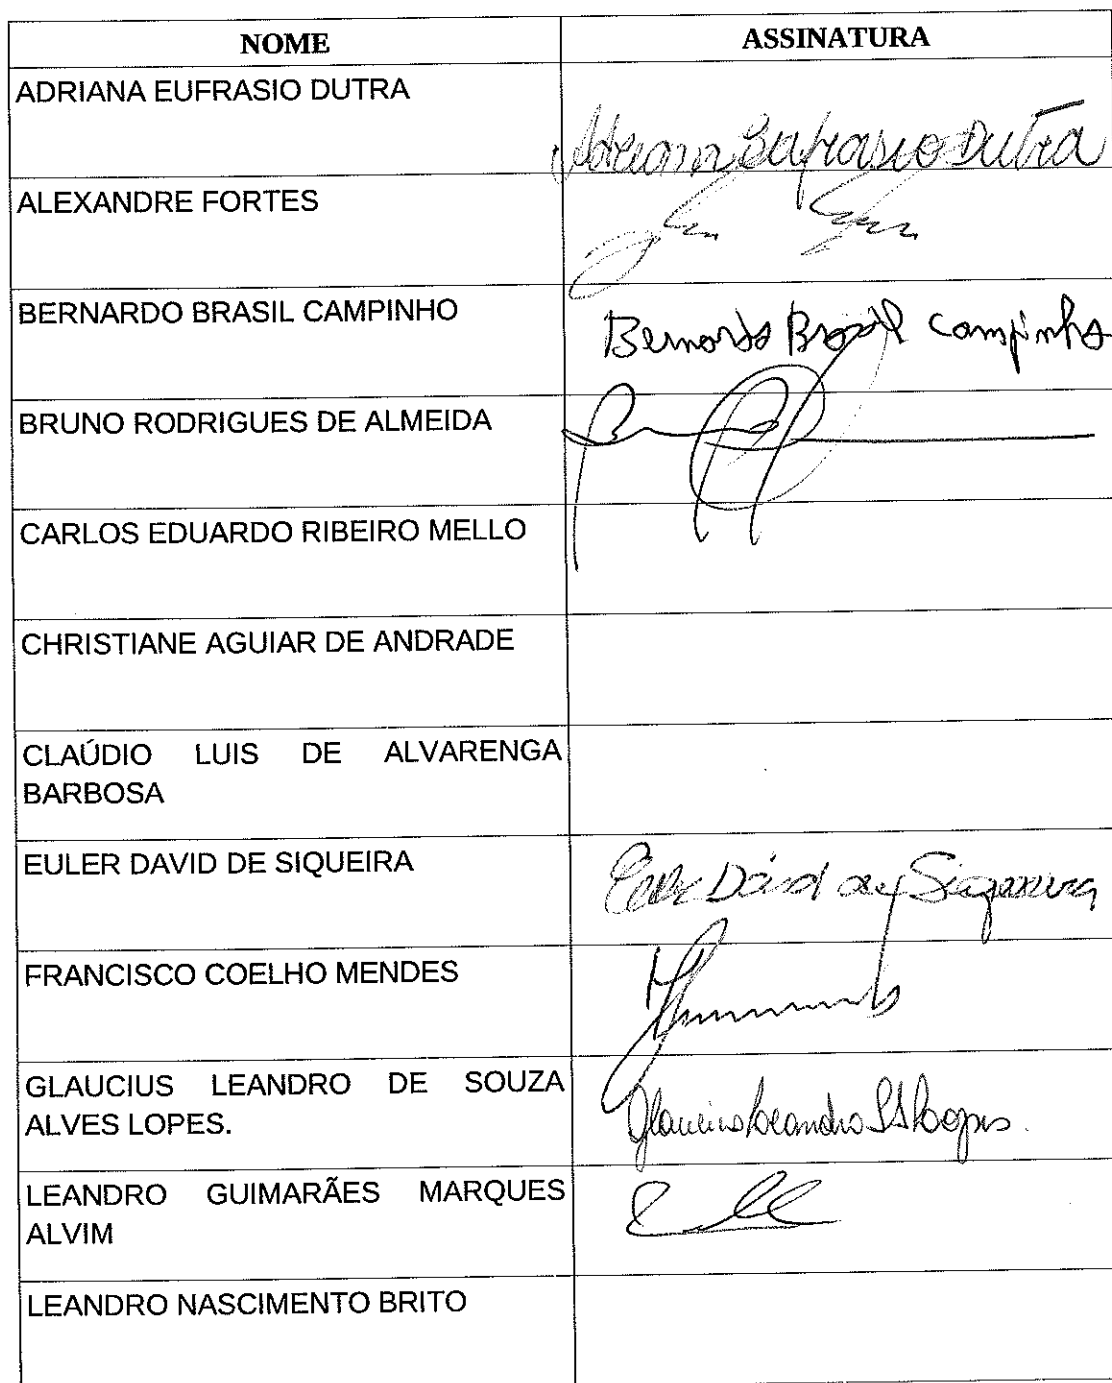 NOME ASSINATURA
ADRIANA EUFRASIO DUTRA
Adriana Eufrasio Dutra
ALEXANDRE FORTES
BERNARDO BRASIL CAMPINHO
Bernardo Brasil Campinho
BRUNO RODRIGUES DE ALMEIDA
CARLOS EDUARDO RIBEIRO MELLO
CHRISTIANE AGUIAR DE ANDRADE
CLAÚDIO LUIS DE ALVARENGA
BARBOSA
EULER DAVID DE SIQUEIRA
Euler David de Siqueira
FRANCISCO COELHO MENDES
GLAUCIUS LEANDRO DE SOUZA
ALVES LOPES.
Glaucius Leandro SALopes.
LEANDRO GUIMARÃES MARQUES
ALVIM
LEANDRO NASCIMENTO BRITO